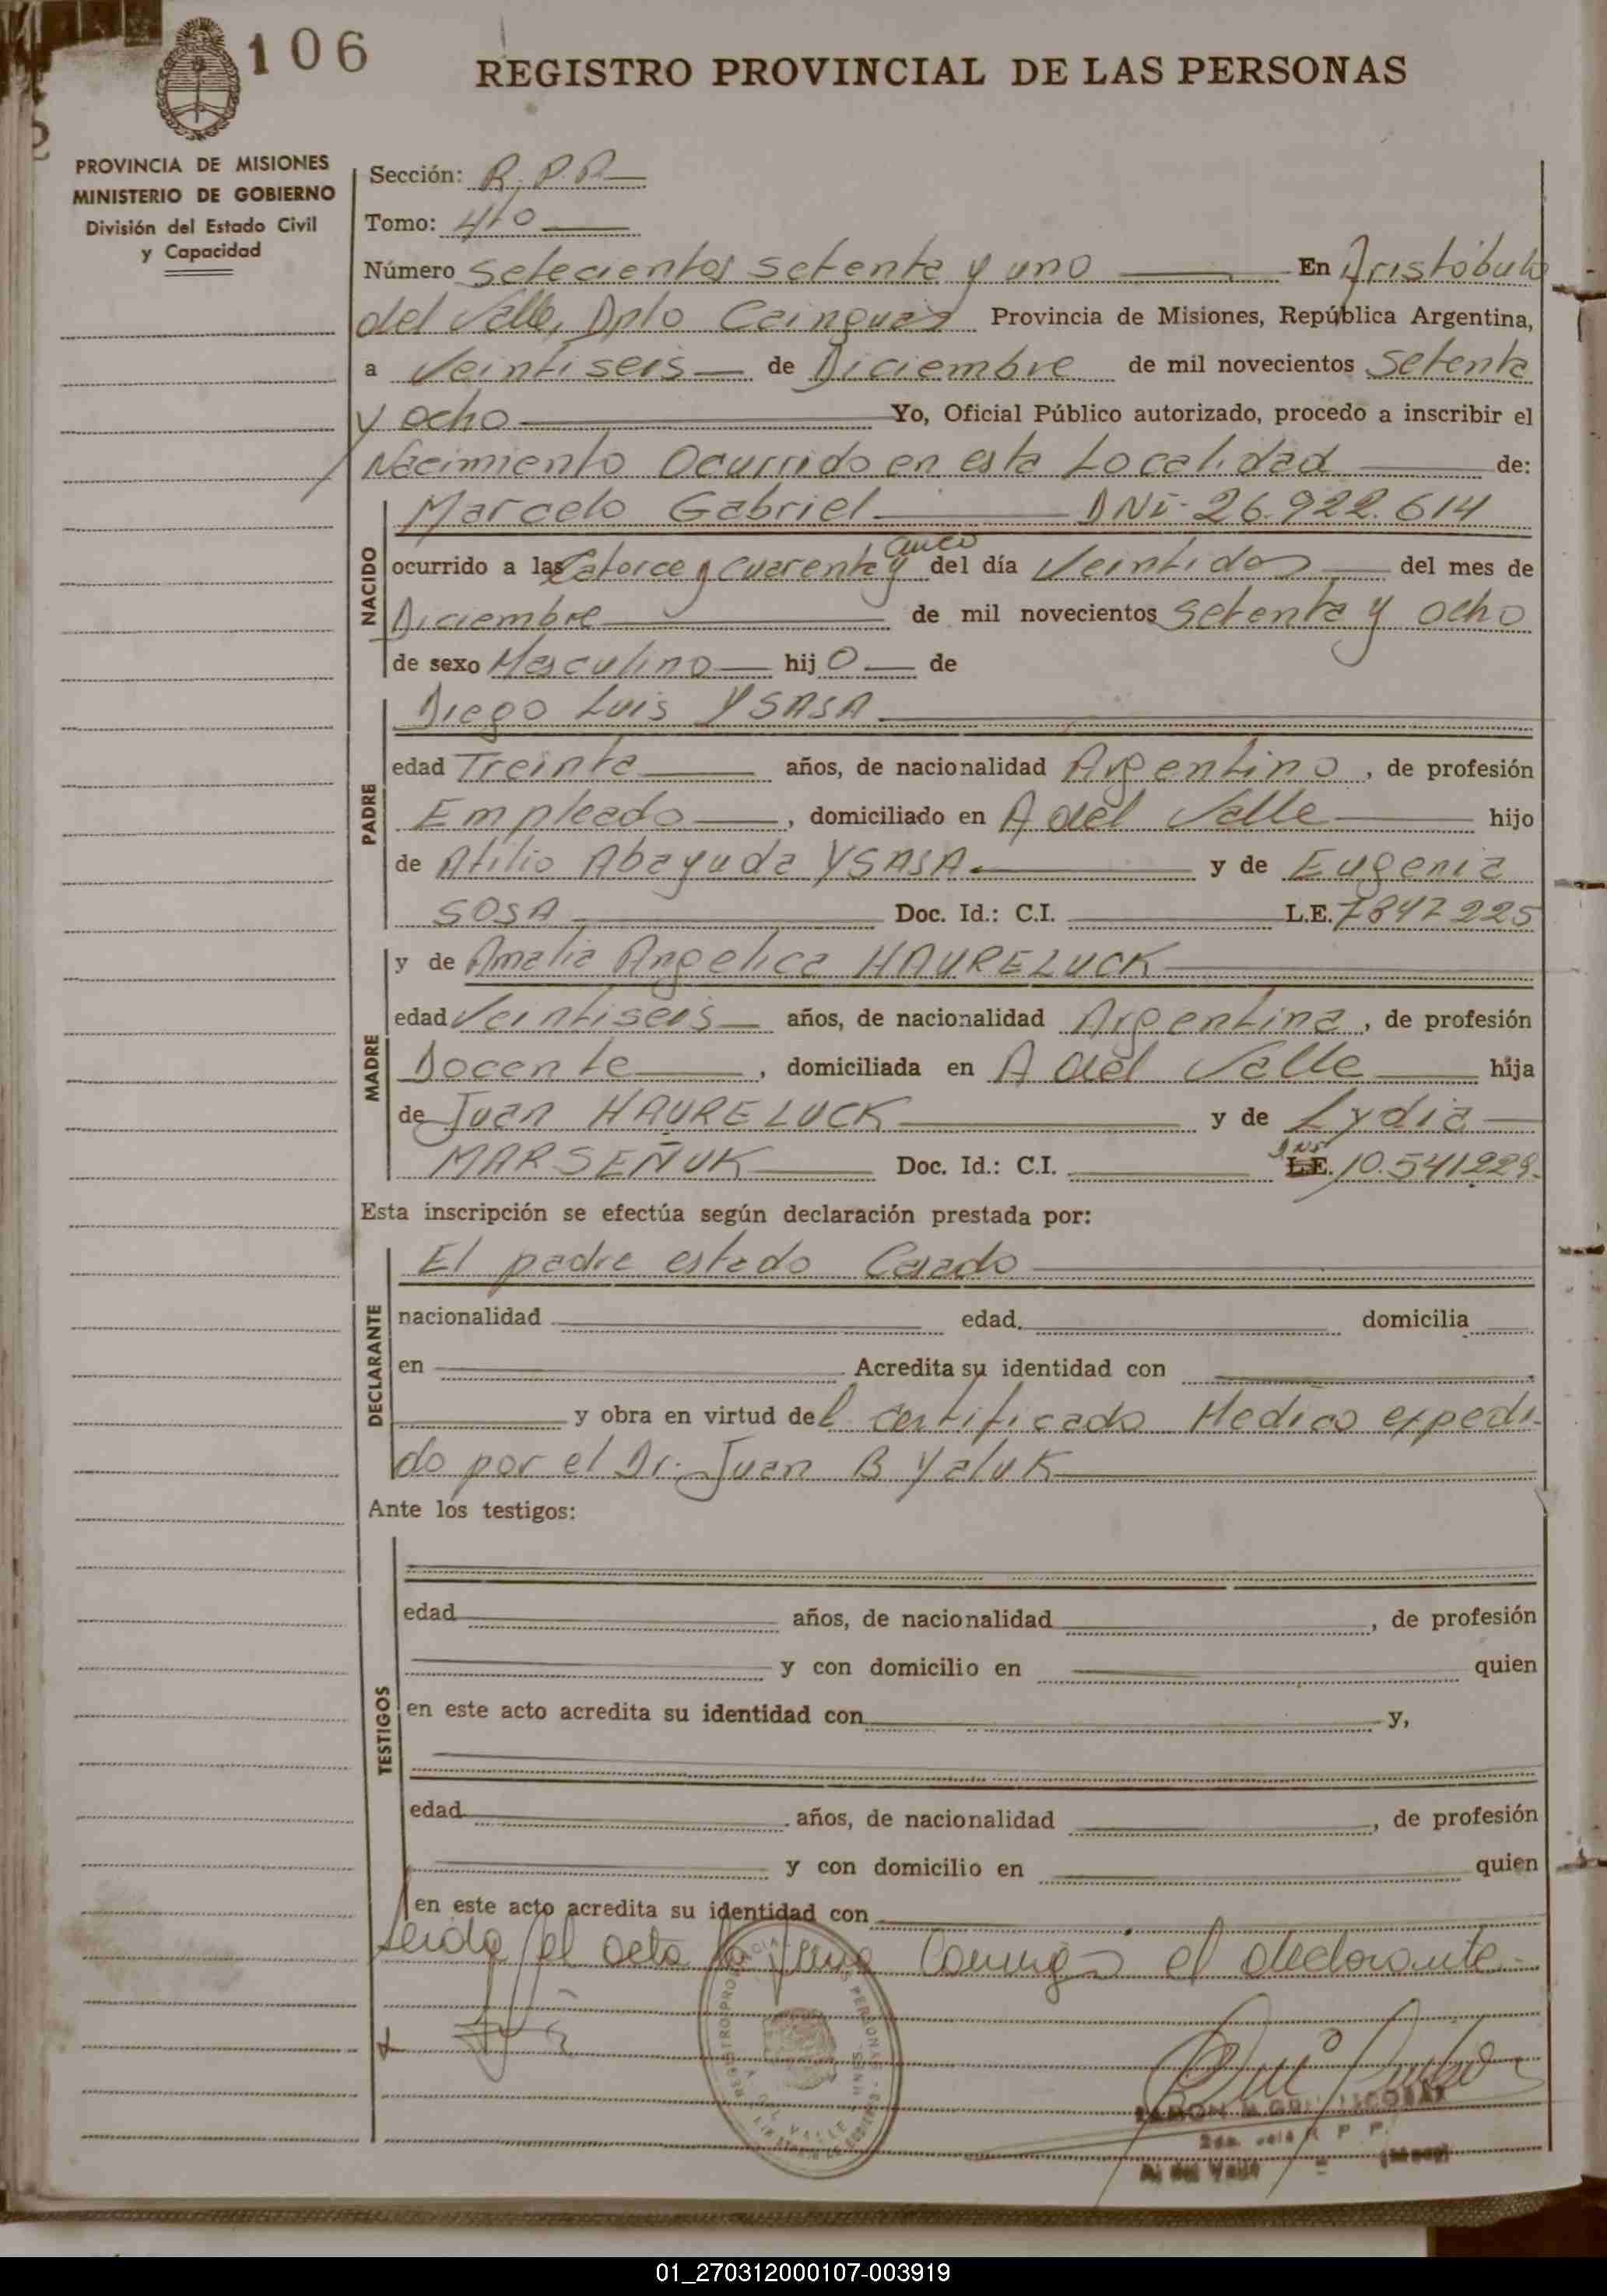 106
REGISTRO PROVINCIAL DE LAS PERSONAS
PROVINCIA DE MISIONES
MINISTERIO DE GOBIERNO
División del Estado Civil
y Capacidad
Sección: R.P.P.
Tomo: 4to
Número Setecientos setenta y uno En Aristóbulo
del Valle, Dpto Cainguas Provincia de Misiones, República Argentina,
a Veintiseis de Diciembre de mil novecientos Setenta
y ocho Yo, Oficial Público autorizado, procedo a inscribir el
Nacimiento Ocurrido en esta Localidad de:
NACIDO
Marcelo Gabriel DNI- 26.922.614
ocurrido a las Catorce y cuarenta y cinco del día Veintidos del mes de
Diciembre de mil novecientos Setenta y ocho
de sexo Masculino hij O de
PADRE
Diego Luis YSASA
edad Treinta años, de nacionalidad Argentino, de profesión
Empleado, domiciliado en A del Valle hijo
de Atilio Abayuda YSASA y de Eugenia
SOSA Doc. Id.: C.I. L.E. 7847225
MADRE
y de Amalia Angelica HAURELUCK
edad Veintiseis años, de nacionalidad Argentina, de profesión
Docente, domiciliada en A del Valle hija
de Juan HAURELUCK y de Lydia
MARSEÑUK Doc. Id.: C.I. DNI L.E. 10.541229.
Esta inscripción se efectúa según declaración prestada por:
DECLARANTE
El padre estado Casado
nacionalidad edad. domicilia
en Acredita su identidad con
y obra en virtud del certificado Medico expedi-
do por el Dr. Juan B Yaluk
Ante los testigos:
TESTIGOS
edad años, de nacionalidad, de profesión
y con domicilio en quien
en este acto acredita su identidad con y,
edad años, de nacionalidad, de profesión
y con domicilio en quien
en este acto acredita su identidad con
Leida el acta la firma Conmigo el declarante.-
A. del Valle
01_270312000107-003919